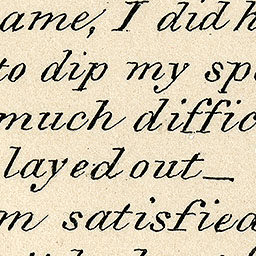 ame, I did h
to dip my sp
much diffic
layed out_
m satisfied